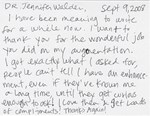 Dr. Jennifer Walden, Sept 9, 2008
I have been meaning to write
for a while now. I want to
thank you for the wonderful job
you did on my augmentation.
I got exactly what I asked for,
people can't tell I have an enhance-
ment, even if they've known me
a long time, until they get close
enough to ask! I love them & get loads
of compliments! Thanks Again!